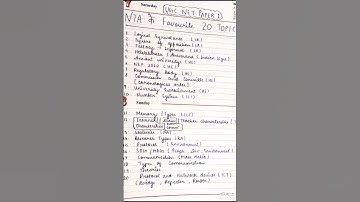 Saturday
UGC NET PAPER 1
NTA के Favourite 20 TOPIC
1. Logical Syllogisms (LR)
2. Square of opposition (LR)
3. Fallacy (LR)
4. Hetvabhasa / Anumana (Indian Logic)
5. Ancient University (HE)
6. NEP 2020 (HE)
7. Regulatory Body (HE)
8. Commission and Committee (HE)
(chronological order)
9. University Environment (HE)
10 Number System (ICT)
Sunday
11. Memory / Types (ICT)
12. Learner's Teacher Characteristics
Characteristics
13
14 Research Types (RA)
15 Protocol (Environment)
16 SDG / MDG (Environment)
17 Communication (Mass Media)
18 Types of Communication
19 Theories
20 Protocol and Network device (ICT)
(Bridge, Repeater, Router)